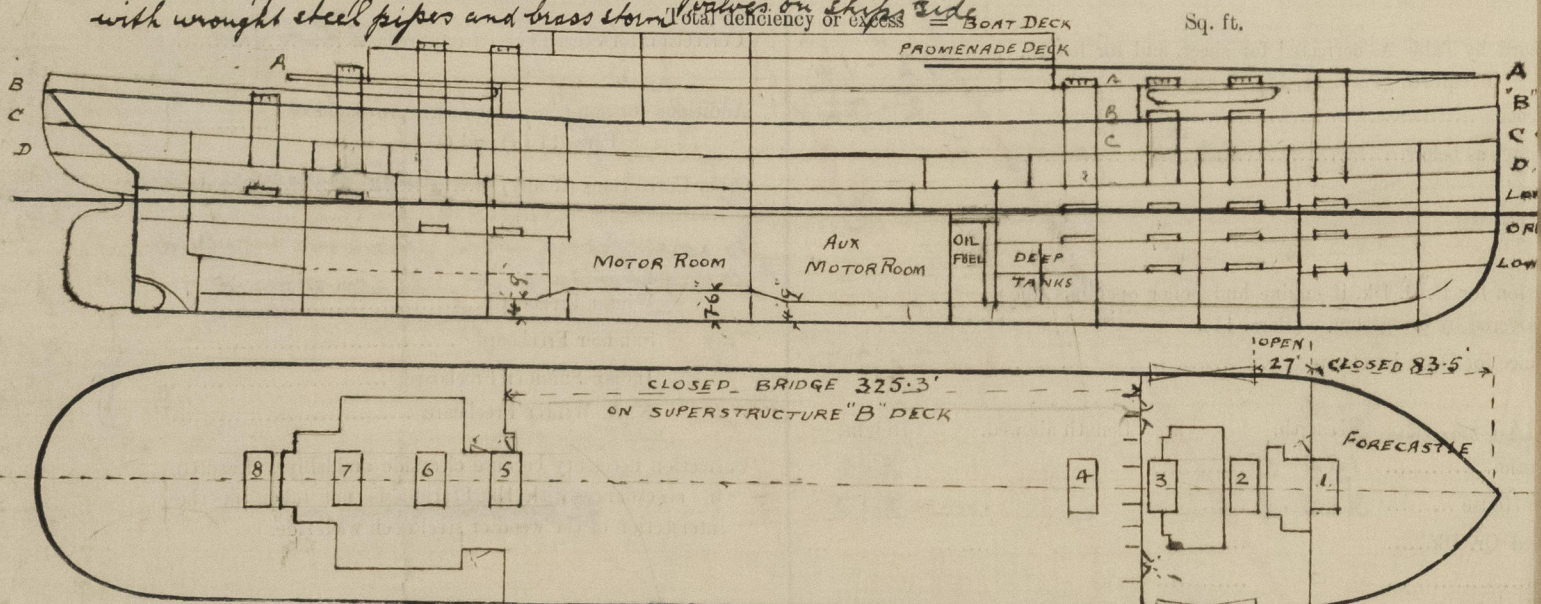 with wrought steel pipes and brass storm valves on ships side
Total deficiency or excess = Sq. ft.
BOAT DECK
PROMENADE DECK
A
B
C
D
A
B
C
A
"B"
C
D
MOTOR ROOM
AUX
MOTOR ROOM
OIL
FUEL
DEEP
TANKS
LOW
4'-9"
7'-6"
4'-9"
OPEN
27'
CLOSED 83·5'
CLOSED BRIDGE 325·3'
ON SUPERSTRUCTURE "B" DECK
FORECASTLE
8
7
6
5
4
3
2
1.